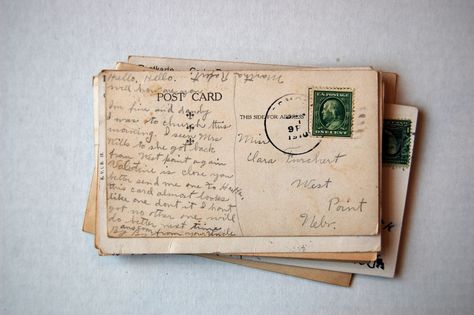 Postkarte
Hello, Hello.
Martha Robert
well how are you
POST CARD
THIS SIDE FOR ADDRESS
I'm fine and dandy
I was to church this
morning. I seen Mrs
Wilk so she got back
from West point again
Valentine is close you
better send me one Ha Ha
this card almost looks
like one don't it I hant
got no other one will
do better next time
from your uncle
U.S. POSTAGE
ONE CENT
9 P
1910
Miss
Clara Burchert
West
Point
Nebr.